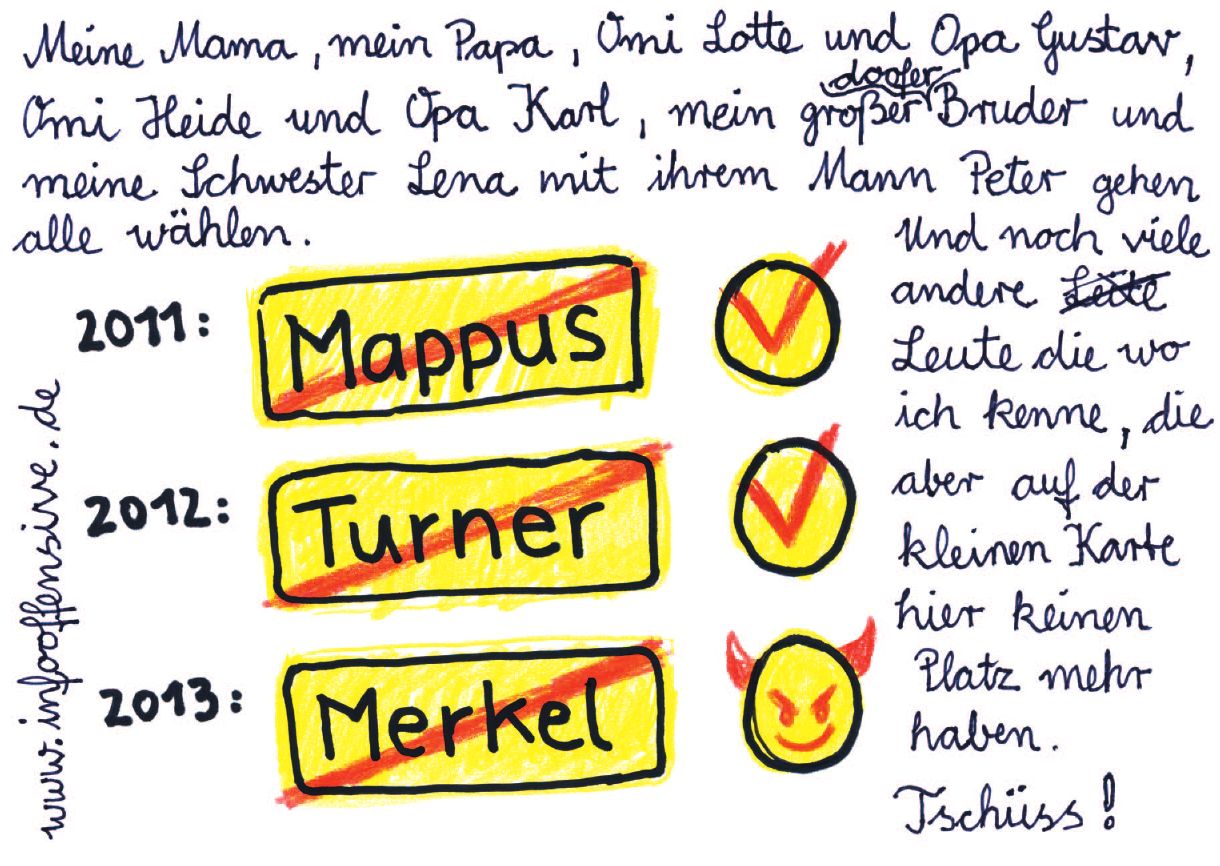 Meine Mama, mein Papa, Omi Lotte und Opa Gustav,
doofer
Omi Heide und Opa Karl, mein großer Bruder und
meine Schwester Lena mit ihrem Mann Peter gehen
alle wählen.
2011: Mappus
2012: Turner
2013: Merkel
Und noch viele
andere Leite
Leute die wo
ich kenne, die
aber auf der
kleinen Karte
hier keinen
Platz mehr
haben.
Tschüss!
www.infooffensive.de